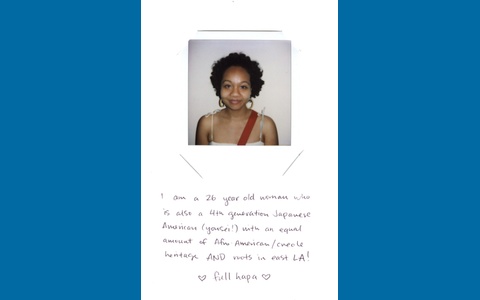 I am a 26 year old woman who
is also a 4th generation Japanese
American (yonsei!) with an equal
amount of Afro American/creole
heritage AND roots in east LA!
♡ full hapa ♡